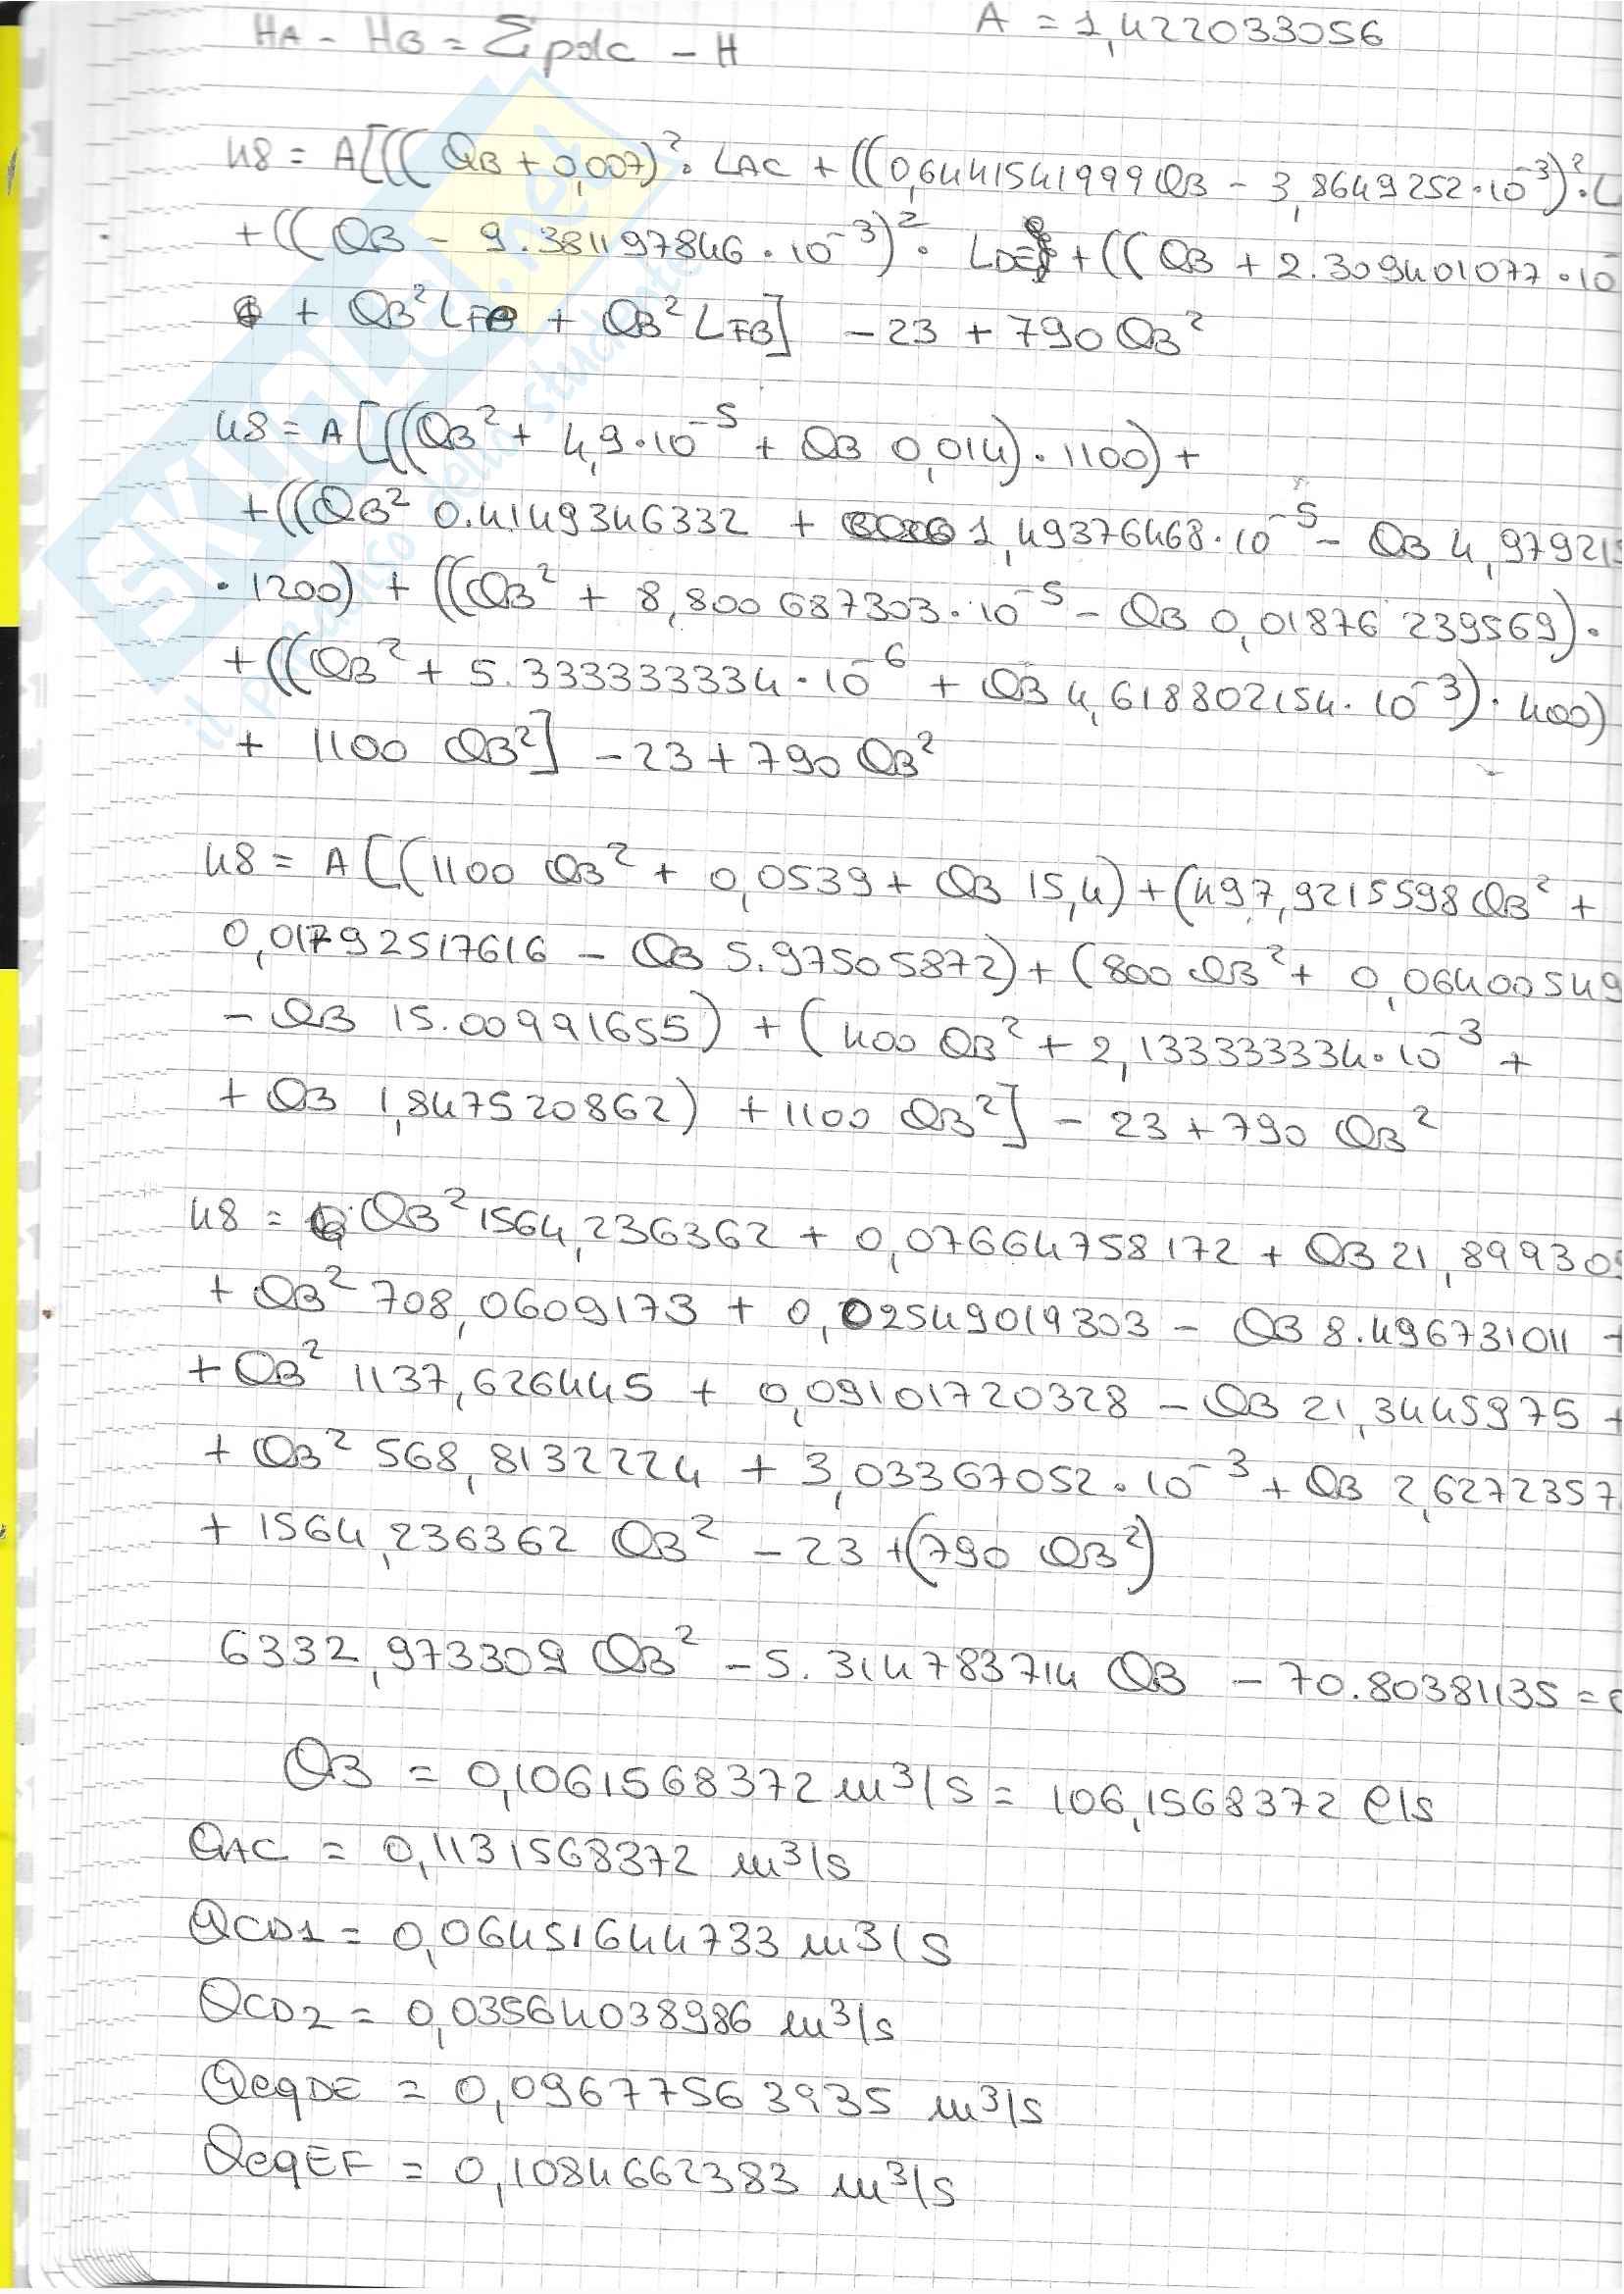 HA - HB = Σ pdc - H
A = 1,422033056
48 = A[((QB + 0,007)²· LAC + ((0,6441541999QB - 3,8649252·10⁻³)²·L
+((QB - 9.381197846·10⁻³)²· LDE + ((QB + 2.309401077·10
+ QB² LFB + QB² LFB] - 23 + 790 QB²
48 = A[((QB² + 4,9·10⁻⁵ + QB 0,014)·1100) +
+((QB² 0.4149346332 + 1,49376468·10⁻⁵ - QB 4,979215
·1200) + ((QB² + 8,800687303·10⁻⁵ - QB 0,01876239569)·
+((QB² + 5.333333334·10⁻⁶ + QB 4,618802154·10⁻³)·400)
+ 1100 QB²] - 23 + 790 QB²
48 = A[(1100 QB² + 0,0539 + QB 15,4) + (497,9215598QB² +
0,01792517616 - QB 5.97505872) + (800 QB² + 0,06400549
- QB 15.00991655) + (400 QB² + 2,133333334·10⁻³ +
+ QB 1,847520862) + 1100 QB²] - 23 + 790 QB²
48 = QB² 1564,236362 + 0,07664758172 + QB 21,899309
+ QB² 708,0609173 + 0,02549019303 - QB 8.496731011 +
+ QB² 1137,626445 + 0,09101720328 - QB 21,3445975 +
+ QB² 568,8132224 + 3,03367052·10⁻³ + QB 2,6272357
+ 1564,236362 QB² - 23 + (790 QB²)
6332,973309 QB² - 5.314783714 QB - 70.80381135 = 0
QB = 0,1061568372 m³/s = 106,1568372 l/s
QAC = 0,1131568372 m³/s
QCD1 = 0,06451644733 m³/s
QCD2 = 0,03564038986 m³/s
QeqDE = 0,09677563935 m³/s
QeqEF = 0,1084662383 m³/s
SKUOLA.net
il paradiso dello studente